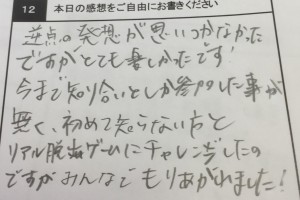 12 本日の感想をご自由にお書きください
逆点の発想が思いつかなかった
ですがとても楽しかったです!
今まで知り合いとしか参加した事が
無く、初めて知らない方と
リアル脱出ゲームにチャレンジしたの
ですがみんなでもりあがれました!